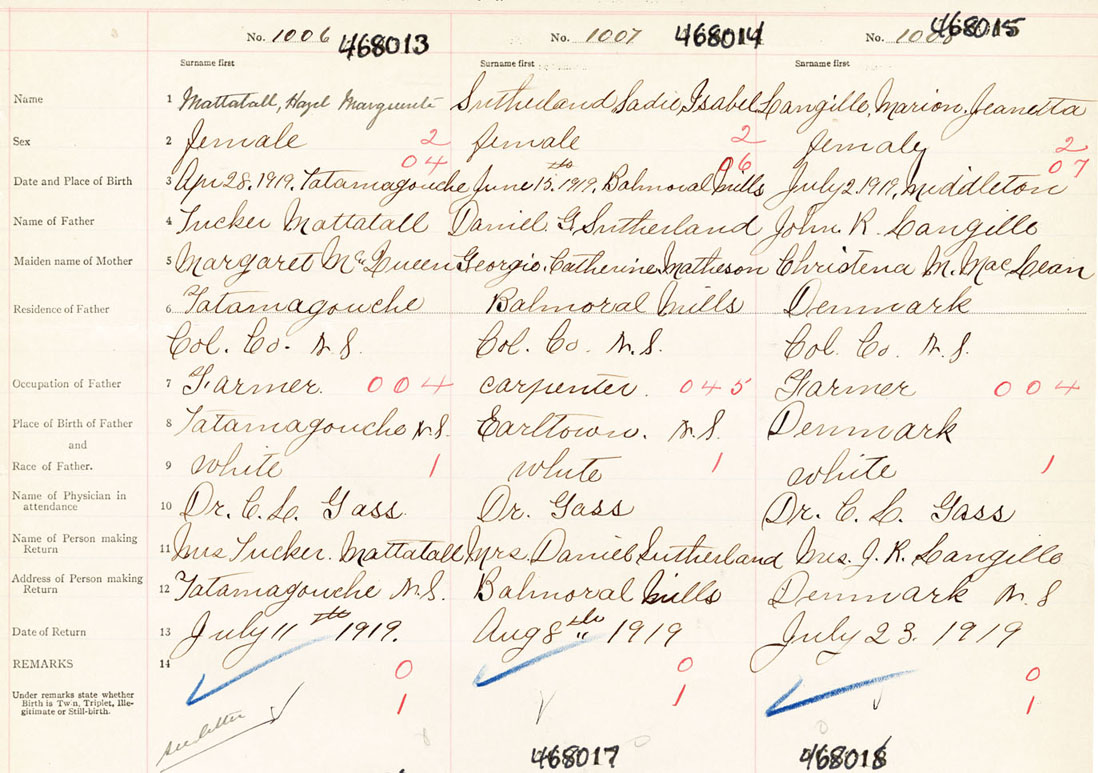 No. 1006 468013 No. 1007 468014 No. 468015
Surname first Surname first Surname first
Name 1 Mattatall, Hazel Marguerite Sutherland Sadie Isabel Langille, Marion Jeanetta
Sex 2 female 2 female 2 female 2
04 06 07
Date and Place of Birth 3 Apr 28. 1919. Tatamagouche June 15th. 1919. Balmoral Mills July 2. 1919, Middleton
Name of Father 4 Tucker Mattatall Daniel G Sutherland John R. Langille
Maiden name of Mother 5 Margaret McQueen Georgie Catherine Matheson Christena M. MacLean
Residence of Father 6 Tatamagouche Balmoral Mills Denmark
Col. Co. N.S. Col. Co. N.S. Col. Co. N.S.
Occupation of Father 7 Farmer. 004 carpenter. 045 Farmer 004
Place of Birth of Father 8 Tatamagouche N.S. Earltown. N.S. Denmark
and
Race of Father. 9 white 1 white 1 white 1
Name of Physician in
attendance 10 Dr. C. L. Gass Dr. Gass Dr. C. L. Gass
Name of Person making
Return 11 Mrs Tucker. Mattatall Mrs. Daniel Sutherland Mrs. J. R. Langille
Address of Person making
Return 12 Tatamagouche N.S. Balmoral Mills Denmark N.S
Date of Return 13 July 11th 1919. Aug 8th 1919 July 23. 1919
REMARKS 14 0 0 0
Under remarks state whether
Birth is Twin, Triplet, Ille-
gitimate or Still-birth. 1 1 1
see letter
468017 468018